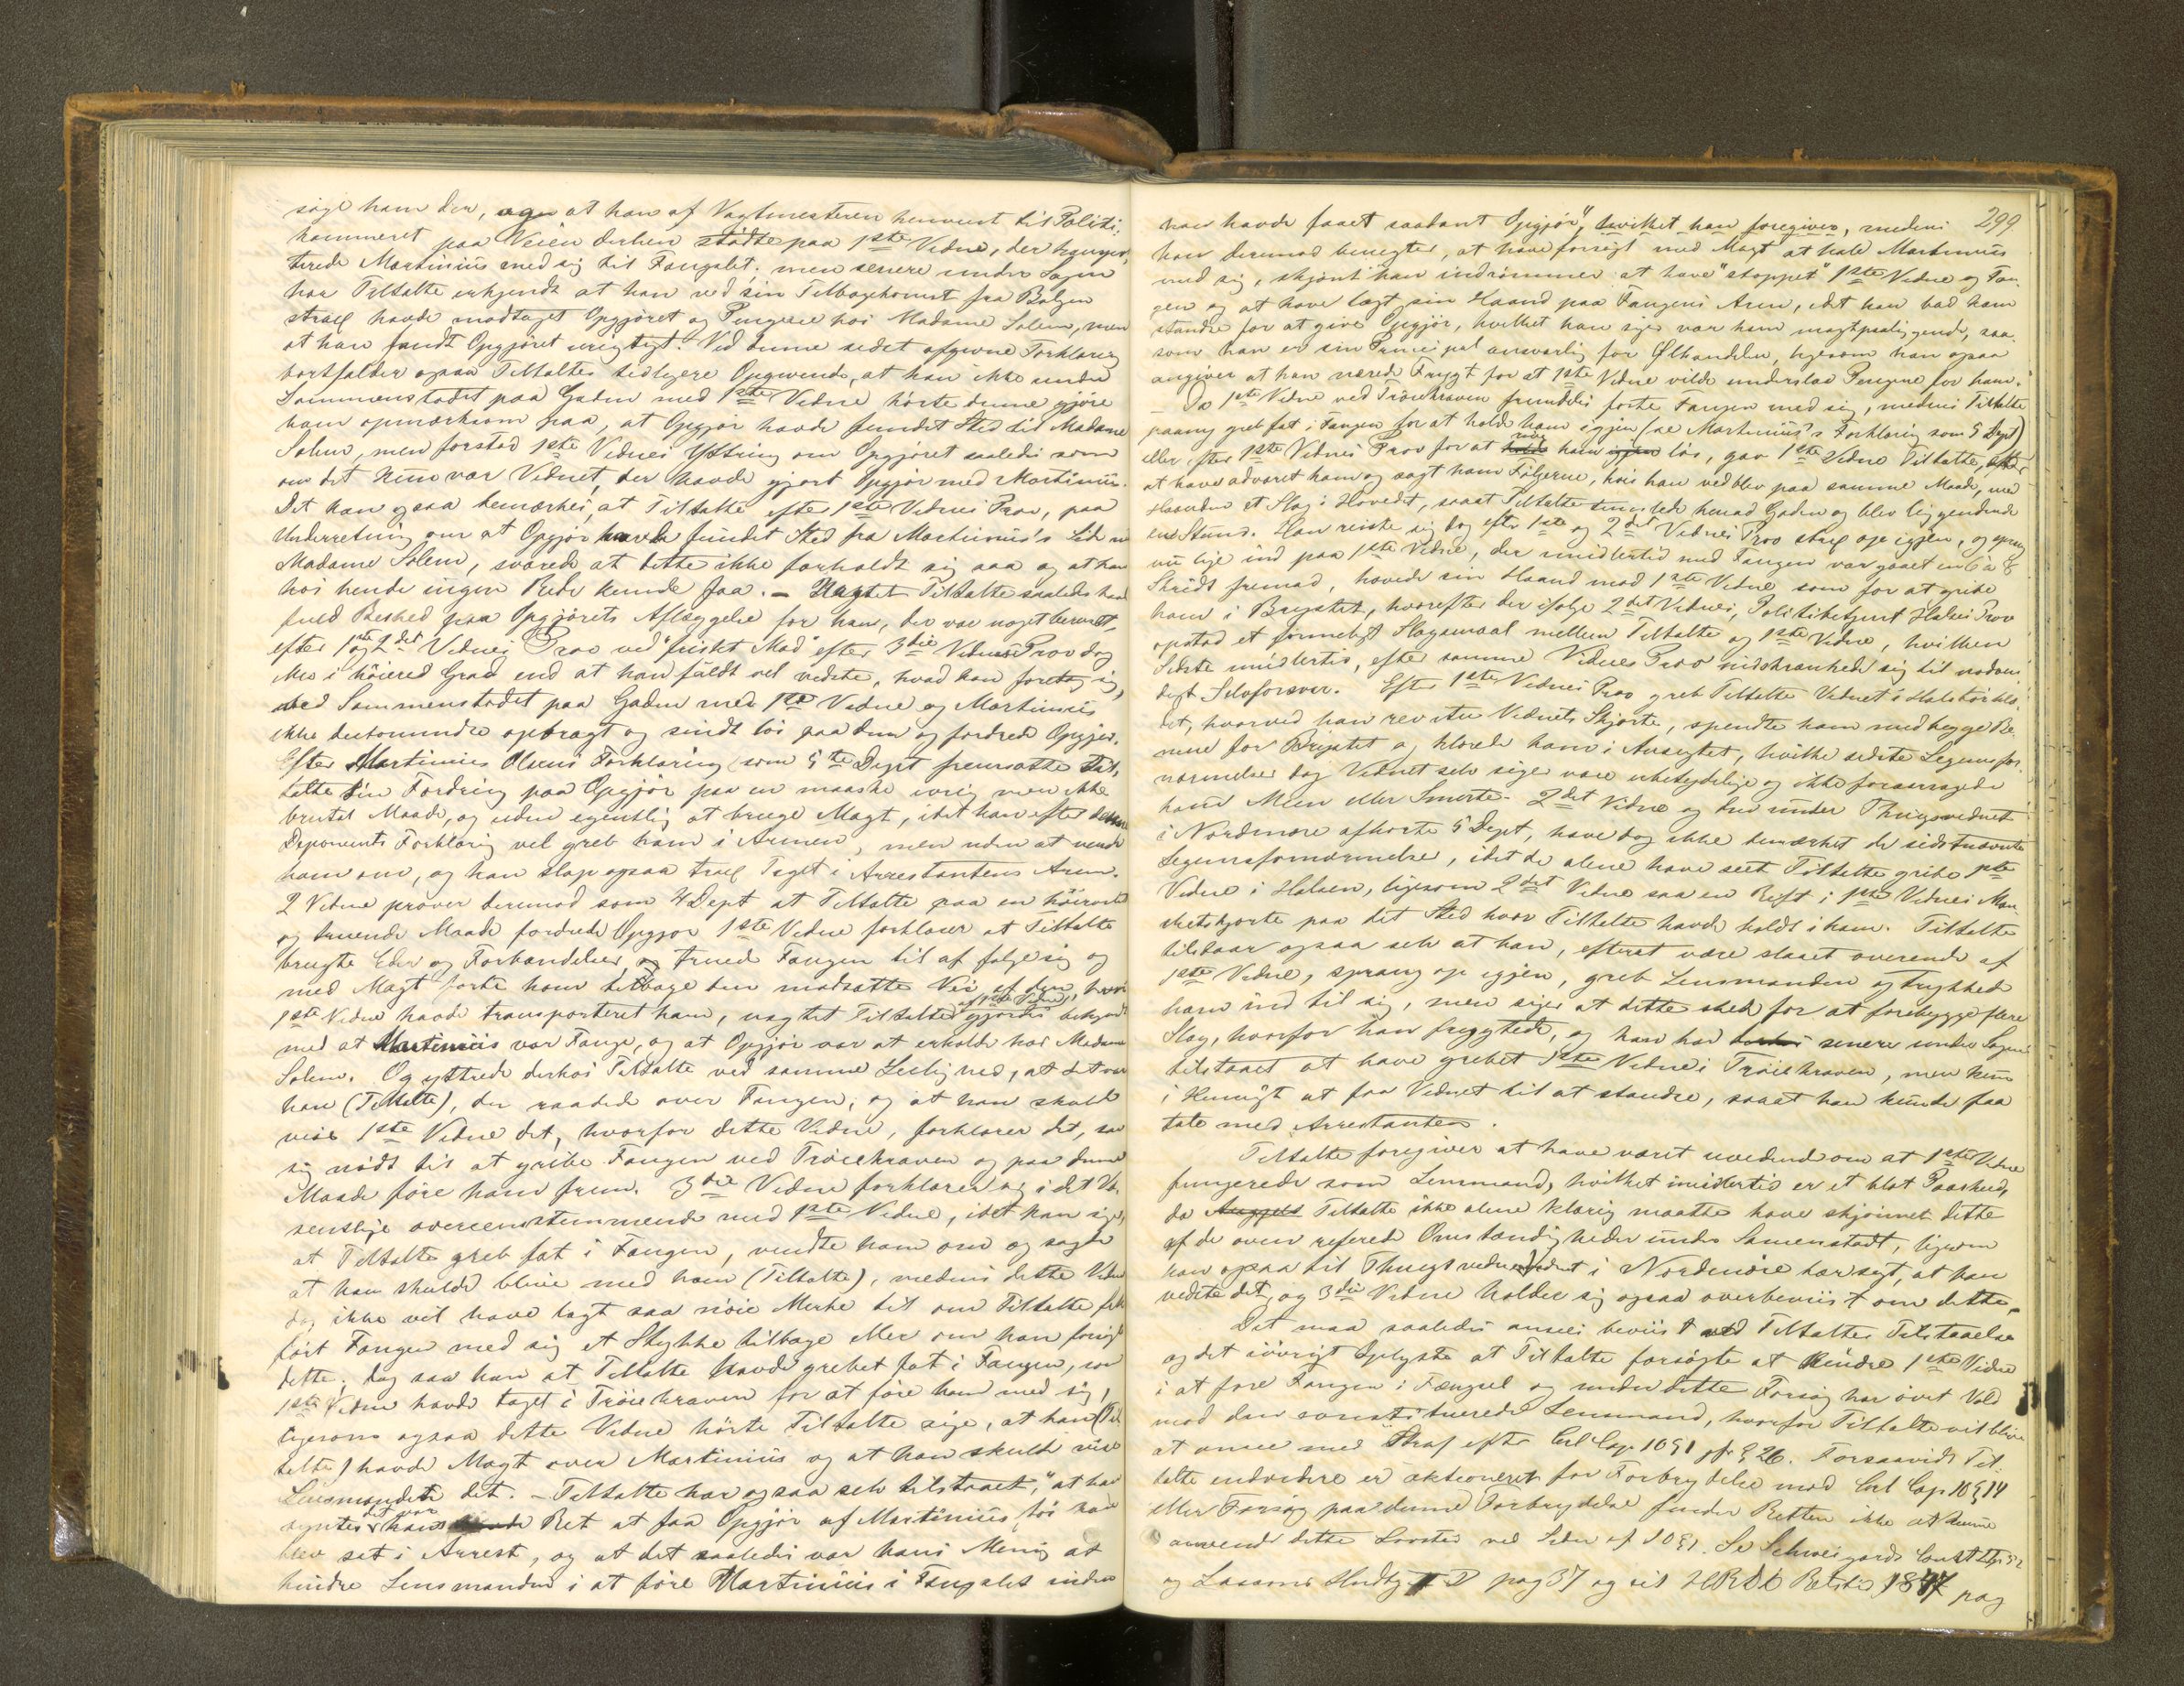 søge ham der, at han af Vagtmesteren henvist til Politi-
kammeret paa Veien derhen stødte paa 1ste Vidne, der
terede Martinius med sig til Fængslet; men senere under Sagen
har Tiltalte erkjendt at han ved sin Tilbagekomst fra
strax havde modtaget Opgjøret og Pengene hos Madame Solem, men
at han fandt Opgjøret urigtigt. Ved denne sidst afgivne Forklaring
bortfalder ogsaa Tiltaltes tidligere Opgivende, at han ikke under
Sammenstødet paa Gaden med 1ste Vidne hørte denne gjøre
ham opmærksom paa, at Opgjør havde fundet Sted til Madame
Solem, men forstod 1ste Vidnes Yttring om Opgjøret saaledes som
om det kun var Vidnet, der havde gjort Opgjør med Martinius.
Det kan ogsaa bemærkes, at Tiltalte efter 1ste Vidnes Prov, paa
Underretning om at Opgjør havde fundet Sted fra Martinius's Side
Madame Solem, svarede at dette ikke forholdt sig saa og at han
hos hende ingen Rede kunde faa. – Uagtet Tiltalte saaledes havde
fuld Beshed paa Opgjørets Aflæggelse for ham, der var noget beruset,
efter 1ste og 2det Vidnes Prov ved "friskt Mod" efter 3die Vidnes Prov dog
ikke i høiere Grad end at han fuldt vel vidste, hvad han foretog sig,
ved Sammenstødet paa Gaden med 1ste Vidne og Martinius
ikke destomindre opbragt og sindt løs paa dem og fordrede Opgjør.
Efter Martinius Olsens Forklaring som 5te Dept fremsatte Til-
talte sin Fordring paa Opgjør paa en maaske ivrig men ikke
brutal Maade, og uden egentlig at bruge Magt, idet han efter denne
Deponents Forklaring vel greb ham i Armen, men uden at vende
ham om, og han slap ogsaa strax Taget i Arrestantens Arm.
2 Vidne prover derimod som 4 Dept at Tiltalte paa en høirøstet
og truende Maade fordrede Opgjør 1ste Vidne forklarer at Tiltalte
brugte Eder og Forbandelser, og truede Fangen til at følge sig og
med Magt førte ham tilbage den modsatte Vei af den, hvori
1ste Vidne havde transporteret ham, uagtet Tiltalte af 1ste Vidne gjordes bekjendt
med at Martinius var Fange, og at Opgjør var at erholde hos Madame
Solem. Og yttrede derhos Tiltalte ved samme Leilighed, at det var
han (Tiltalte), der raadede over Fangen, og at han skulde
vise 1ste Vidne det, hvorfor dette Vidne, forklarer det, saa
sig nødt til at gribe Fangen ved Trøiekraven og paa denne
Maade føre ham frem. 3die Vidne forklarer sig i det Væ-
sentlige overensstemmende med 1ste Vidne, idet han siger,
at Tiltalte greb fat i Fangen, vendte ham om og sagde
at han skulde blive med ham (Tiltalte), medens dette Vidne
dog ikke vil have lagt saa nøie Mærke til om Tiltalte fik
ført Fangen med sig et Stykke tilbage eller om han forsøgte
dette; dog saa han at Tiltalte havde grebet fat i Fangen, som
1ste Vidne havde taget i Trøiekraven for at føre ham med sig,
ligesom ogsaa dette Vidne hørte Tiltalte sige, at han (Til-
talte) havde Magt over Martinius og at han skulde vise
Lensmanden det. – Tiltalte har ogsaa selv tilstaaet, "at han
syntes det var hans Ret at faa Opgjør af Martinius før han
blev sat i Arrest, og at det saaledes var hans Mening at
hindre Lensmanden i at føre Martinius i Fængslet inden
299
han havde faaet saadant Opgjør", hvilket han foregiver, medens
han derimod benegter, at have forsøgt med Magt at hale Martinius
med sig, skjønt han indrømmer at have "stoppet" 1ste Vidne og Fan-
gen og at have lagt sin Haand paa Fangens Arm, idet han bad ham
standse for at give Opgjør, hvilket han siger var ham magtpaaliggende, saa-
som han er sin Principal ansvarlig for Ølhandelen, ligesom han ogsaa
angiver at han nærede Frygt for at 1ste Vidne vilde underslaa Pengene for ham.
– Da 1ste Vidne ved Trøiekraven fremdeles førte Fangen med sig, medens Tiltalte
paany greb fat i Fangen for at holde ham igjen (se Martinius's Forklaring som 5 Dept)
eller efter 1ste Vidnes Prov for at rive ham løs, gav 1ste Vidne Tiltalte, efter
at have advaret ham og sagt ham Følgerne, hvis han vedblev paa samme Maade, med
Haanden et Slag i Hovedet, saaat Tiltalte tumlede henad Gaden og blev liggendende
en Stund. Han reiste sig dog efter 1ste og 2det Vidnes Prov strax op igjen, og sprang
nu lige ind paa 1ste Vidne, der imidlertid med Fangen var gaaet en 6 à 8
Skridt fremad, hævede sin Haand mod 1ste Vidne som for at gribe
ham i Brystet, hvorefter der ifølge 2det Vidnes, Politibetjent Halses Prov
opstod et formeligt Slagsmaal mellem Tiltalte og 1ste Vidne, hvilken
Sidste imidlertid, efter samme Vidnes Prov indskrænkede sig til nødven-
digt Selvforsvar. Efter 1ste Vidnes Prov greb Tiltalte Vidnet i Halstørklæ-
det, hvorved han rev itu Vidnets Skjorte, spendte ham med begge Be-
nene for Brystet og klorede ham i Ansigtet, hvilke sidste Legemsfor-
nærmelser dog Vidnet selv siger vare ubetydelige og ikke foraarsagede
ham Meen eller Smerte. 2det Vidne og den under Thingsvidnet
i Nordmøre afhørte 5 Dept, have dog ikke bemærket de sidstnævnte
Legemsfornærmelser, idet de alene have seet Tiltalte gribe 1ste
Vidne i Halsen, ligesom 2det Vidne saa en Rift i 1ste Vidnes Man-
chetskjorte paa det Sted hvor Tiltalte havde holdt i ham. Tiltalte
tilstaar ogsaa selv at han, efterat være slaaet overende af
1ste Vidne, sprang op igjen, greb Lensmanden og trykkede
ham ind til sig, men siger at dette skede for at forebygge flere
Slag, hvorfor han frygtede, og han har senere under Sagen
tilstaaet at have grebet 1ste Vidne i Trøiekraven, men kun
i Hensigt at faa Vidnet til at standse, saaat han kunde faa
tale med Arrestanten.
Tiltalte foregiver at have været uvidende om at 1ste Vidne
fungerede som Lensmand, hvilket imidlertid er et blot Paaskud,
da Tiltalte ikke alene klarlig maatte have skjønnet dette
af de oven referede Omstændigheder under Samenstødt, ligesom
han ogsaa til Thingsvidnet i Nordmøre har sagt, at han
vidste det, og 3die Vidne holder sig ogsaa overbeviist om dette.
Det maa saaledes ansees beviist ved Tiltaltes Tilstaaelse
og det iøvrigt Oplyste at Tiltalte forsøgte at hindre 1ste Vidne
i at føre Fangen i Fængsel og under dette Forsøg har øvet Vold
mod den constituerede Lensmand, hvorfor Tiltalte vil blive
at ansee med Straf efter Crl Cap. 10 § 1 jfr § 26. Forsaavidt Til-
talte endvidere er aktioneret for Forbrydelse mod Crl Cap 10 § 14
eller Forsøg paa denne Forbrydelse finder Retten ikke at kunne
anvende dette Lovsted ved Siden af 10 § 1. Se Schweigaards
og Lasons Hndbg pag 37 og til Retstid 1847 pag